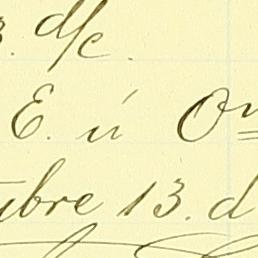 3. d/c.
E. ú On
ubre 13. d